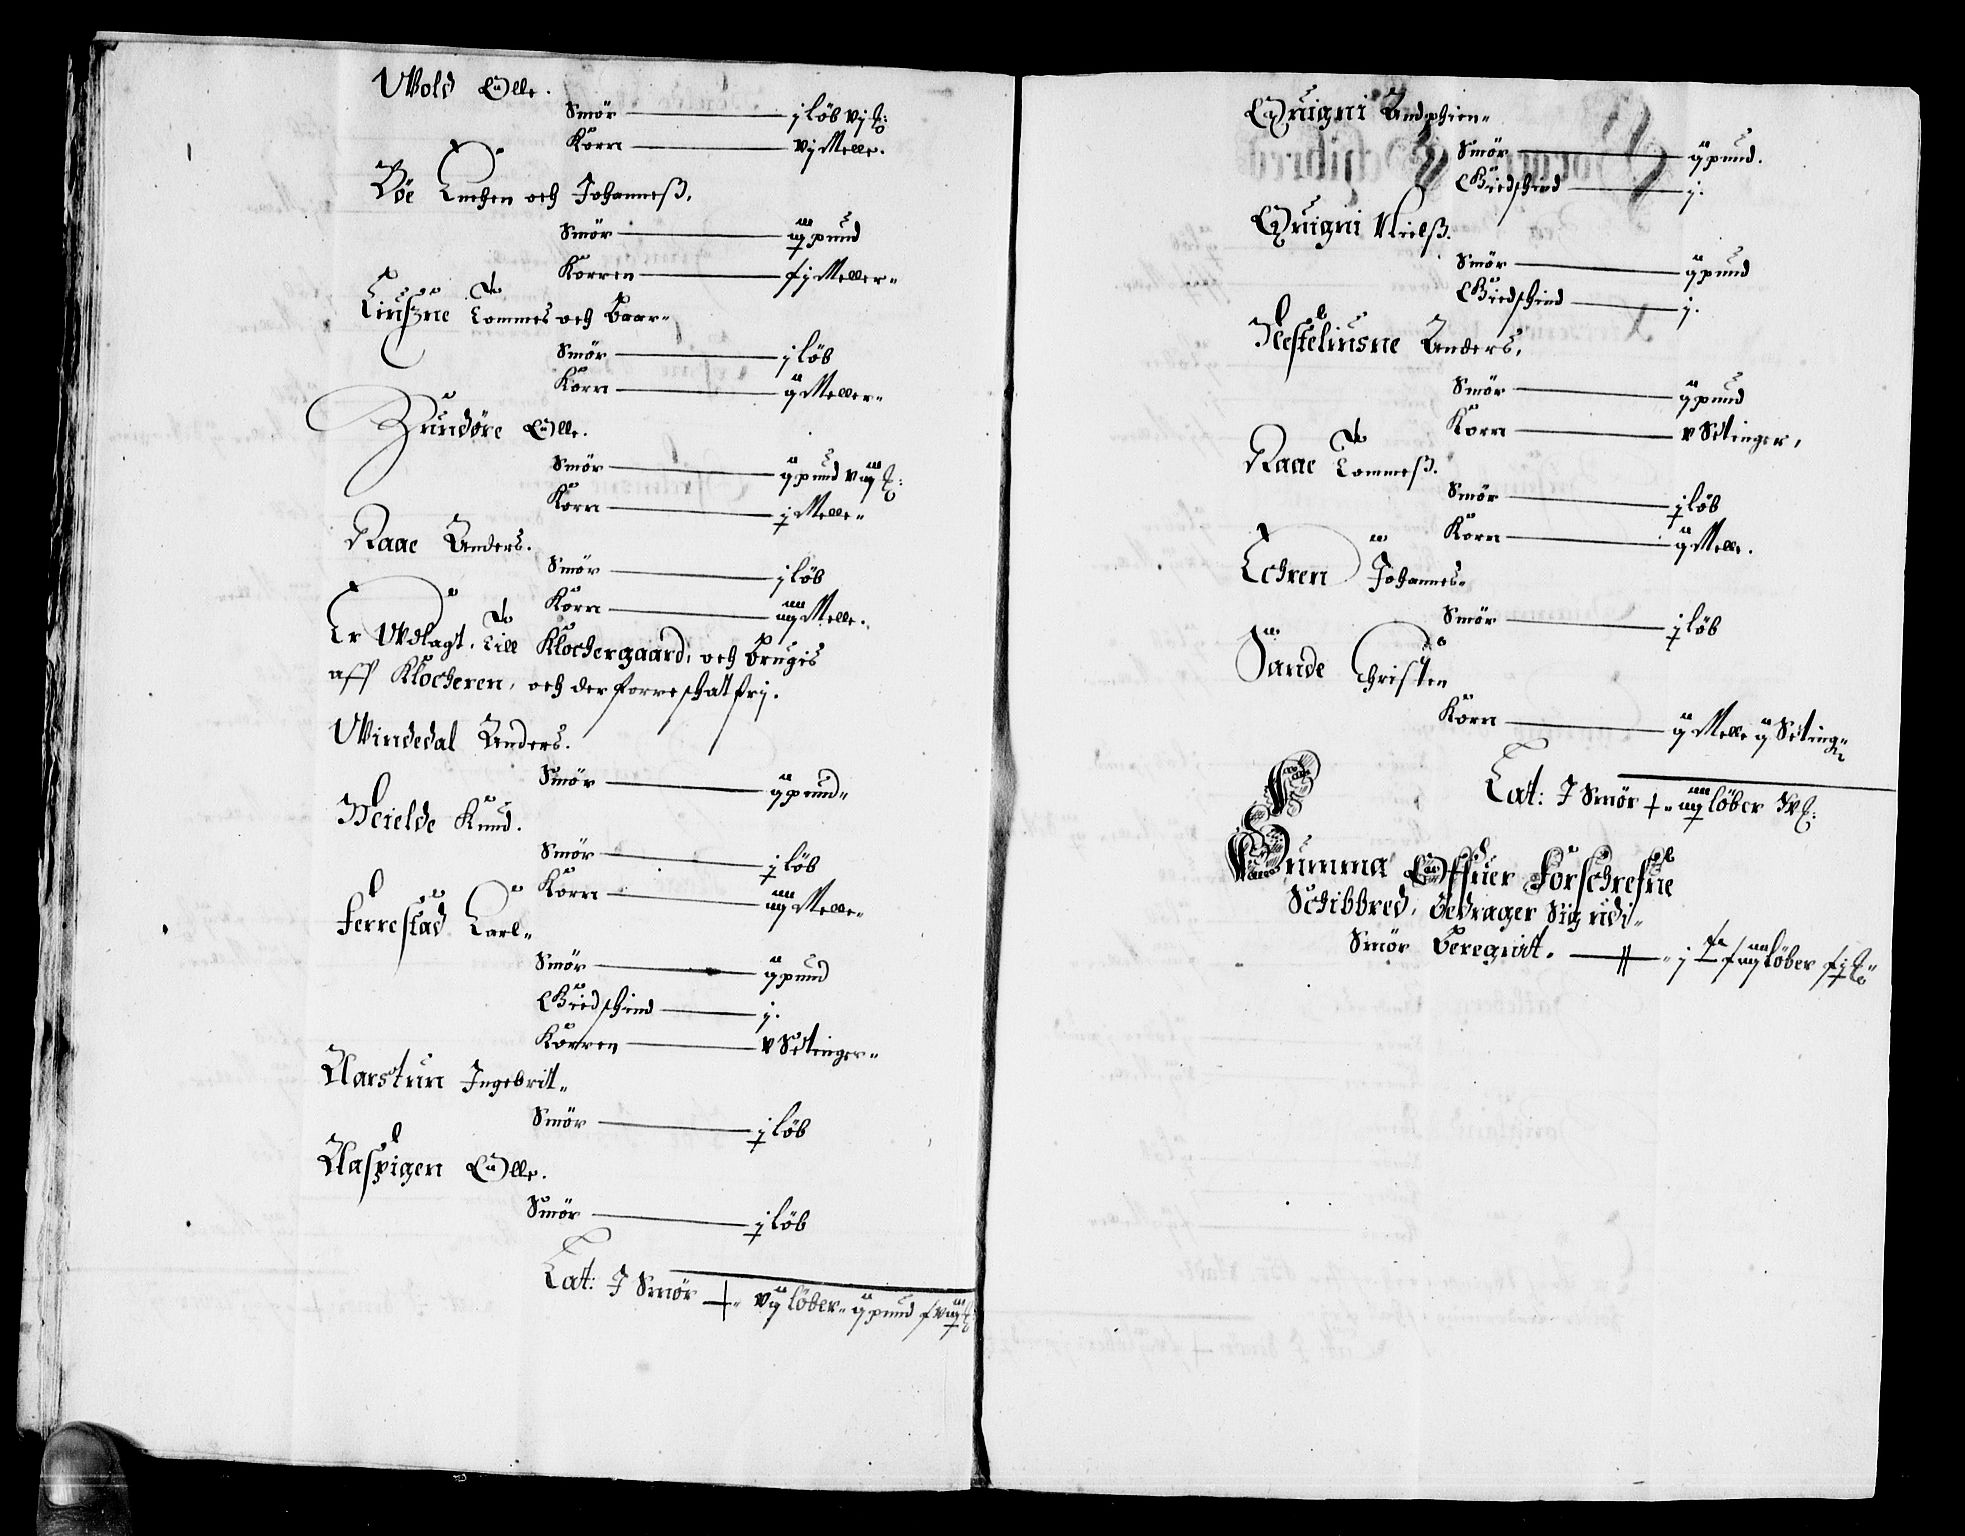 Wold Olle.
Smör j löb vj
Korn vj Melle.
Böe och Johanneß.
Smör pund
Korren Meller
Tommes och Baar
Smör j löb
Korn ij Meller
Zundöre Olle.
Smör ij pund
Korn j Melle
Raae Anders.
Smör j löb
Korn iiij Melle.
Er Wdlagt. till Klochergaard, och brugis
aff Klocheren, och der forre schatfrj.
Windedal Anders.
Smör ij pund
Meielde Knud.
Smör j löb
Korn iiij Melle
Ferrestad Carl
Smör ij pund
Giedschind j.
Korren v Setinger
Narstun Ingebrit
Smör j löb
Naspigen Olle.
Smör j löb
Lat: J Smör vij löber ij pund
Quigni
Smör ij pund.
Giedschind j.
Quigni Nielß.
Smör ij pund
Giedschind j.
Nestelinsne Anders.
Smör ij pund
Korn v Setinger
Raae Tommeß.
Smör j löb
Korn ij Melle.
Echren Johannes
Smör j löb
Sande Christen
Korn ij Melle ij Seting
Lat: J Smör iiij löber
Summa Offuer Forschrefne
Schibbred, bedrager sig udi
Smör beregnit. löber